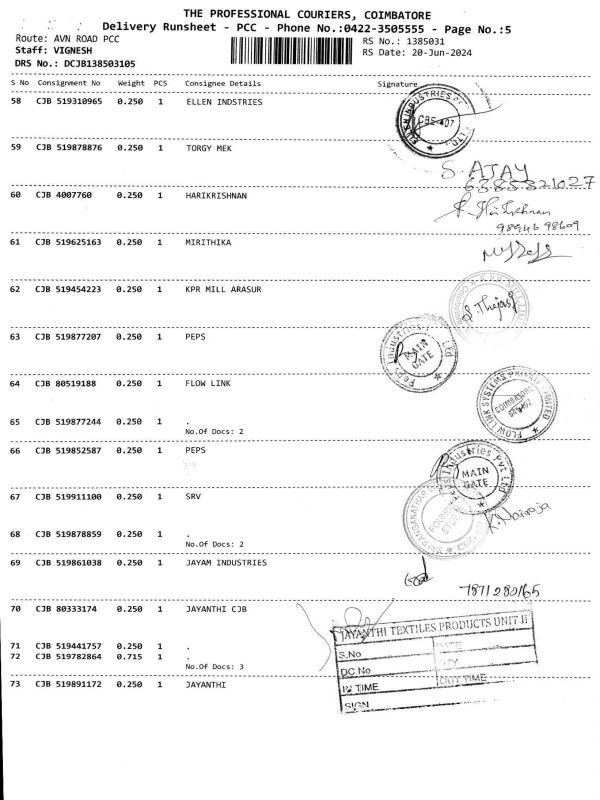 THE PROFESSIONAL COURIERS, COIMBATORE
Delivery Runsheet - PCC - Phone No.:0422-3505555 - Page No.:5
Route: AVN ROAD PCC
RS No.: 1385031
Staff: VIGNESH
RS Date: 20-Jun-2024
DRS No.: DCJB138503105
S No Consignment No Weight PCS Consignee Details Signature
58 CJB 519310965 0.250 1 ELLEN INDSTRIES
CBE-407
59 CJB 519878876 0.250 1 TORGY MEK
S. AJAY
6385821027
60 CJB 4007760 0.250 1 HARIKRISHNAN
98946 98609
61 CJB 519625163 0.250 1 MIRITHIKA
62 CJB 519454223 0.250 1 KPR MILL ARASUR
S. Thejas
63 CJB 519877207 0.250 1 PEPS
Peps Industries Pvt Ltd
MAIN
GATE
64 CJB 80519188 0.250 1 FLOW LINK
FLOW LINK SYSTEMS PRIVATE LIMITED
COIMBATORE
65 CJB 519877244 0.250 1 .
No.Of Docs: 2
66 CJB 519852587 0.250 1 PEPS
Peps Industries Pvt Ltd
MAIN
GATE
67 CJB 519911100 0.250 1 SRV
68 CJB 519878859 0.250 1 .
No.Of Docs: 2
69 CJB 519861038 0.250 1 JAYAM INDUSTRIES
7871280165
70 CJB 80333174 0.250 1 JAYANTHI CJB
JAYANTHI TEXTILES PRODUCTS UNIT II
71 CJB 519441757 0.250 1 .
S.No DATE
72 CJB 519782864 0.715 1 .
No.Of Docs: 3
DC No QTY
73 CJB 519891172 0.250 1 JAYANTHI
IN TIME OUT TIME
SIGN